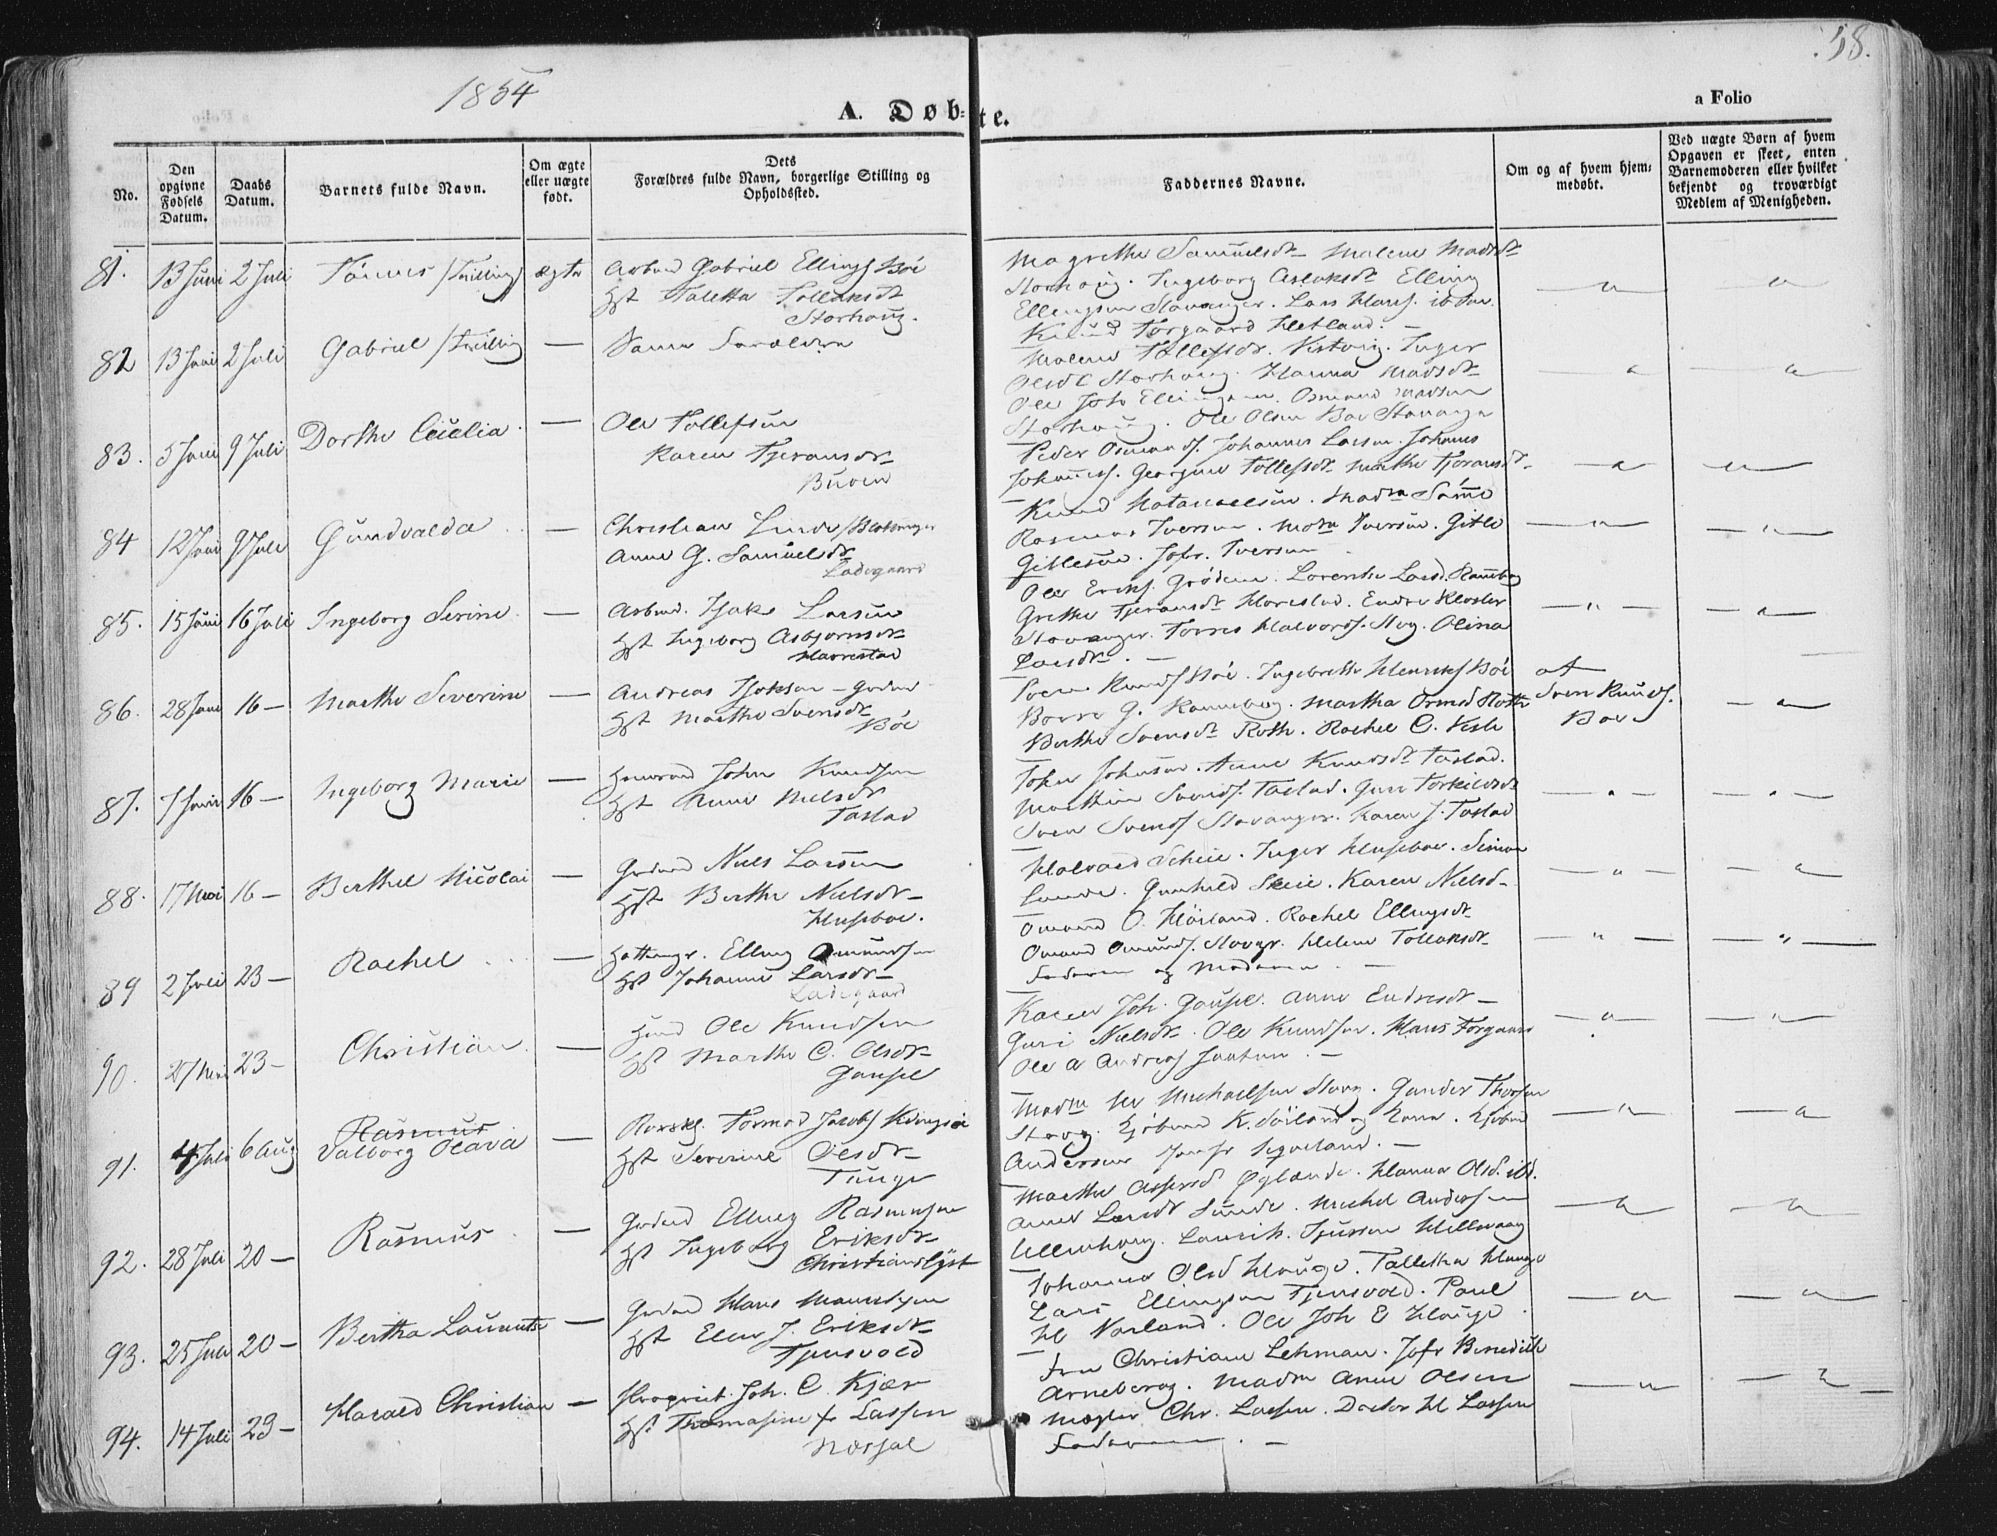 58.
1854
a Folio
A. Døb- te.
No.
Den opgivne Fødsels Datum.
Daabs Datum.
Barnets fulde Navn.
Om ægte eller uægte født.
Dets Forældres fulde Navn, borgerlige Stilling og Opholdssted.
Faddernes Navne.
Om og af hvem hjemmedøbt.
Ved uægte Børn af hvem Opgaven er skeet, enten Barnemoderen eller hvilket bekjendt og troværdigt Medlem af Menigheden.
81. 13 Juni 2 Juli Tønnes /Tvilling/ ægte
Arbmd Gabriel Ellingf Bøe
Hst Taletta Tollaksdt
Storhoug.
Magrethe Samuelsdt Malene Madsdt
Storhoug. Ingeborg Aslaksdt Elling
Ellingsen Stavanger. Lars Hansf.
Knud Torgaard Hetland. —
82 13 Juni 2 Juli Gabriel /Tvilling —
Samme Forældre
Malene Tollefsdr. Inger
Olsdt Storhoug. Hanna Madsdt
Ole Joh Ellingsen. Osmund Madsen
Storhoug. Ole Olsen Boe Stavanger
83. 5 Juni 9 Juli Dorthe Cecelia. —
Ole Tollefsen
Karen Tjeransdr
Buøen
Peder Osmundf. Johannes Larsen. Johannes
Johannesf. Georgine Tollefsdt Marthe Tjeransdt
84 12 Juni 9 Juli Gundvalda —
Christian Lunde /
Anne G. Samuelsdr
Ladegaard
Knud Natanaelsen. Madm Sømme
Rasmus Iversen. Madm Iversen. Gitle
Gitlesen. Jofr. Iversen
85. 15 Juni 16 Juli Ingeborg Serine. —
Arbmd. Tjøke Larsen
Hst Ingeborg Asbjørnsdr
Harrestad
Ole Erikf. Grødem. Lorentse Larsd. Ranneberg
Grethe Tjeransdt Harestad. Endre Kloster
Stavanger. Torres Halvorsf. Olina
Larsdr. —
86. 28 Juni 16 — Marthe Severine —
Andreas Tjøksen — Gaardmd
Hst Marthe Svensdr
Bøe
Sven Knudf Bøe. Ingebrethe Henriksf Bøe
Børre G. Ranneberg. Martha Ormsd Roth
Berthe Svensdt Roth. Rachel C.
af
Sven Knudsf.
Boe
87. 7 Juni 16 — Ingeborg Marie —
Huusmd John Knudsen
Hst Anne Nielsdr
Tastad
John Johnsen. Anne Knudsdt Tastad.
Marthin Svendsf. Tastad. Guri Torkildsdt
Sven Svendsf Stavanger. Karen J. Tastad
88. 17 Mai 16 — Berthel Nicolai —
Gaardmd Niels Larsen
Hst Berthe Nielsdr
Husebøe.
Halvard Scheie. Inger Husebøe. Simon
Lunde. Gunhild Skeie. Karen Nielsd
89 2 Juli 23 — Rachel —
Elling Omundsen
Hst Johanne Larsdr
Ladegaard
Omund O. Høiland. Rachel Ellingsdt
Omund Omundsf. Stavgr. Helene Tollaksdt
Faderen og Moderen. —
90. 27 Mai 23 — Christian. —
Huusmd Ole Knudsen
Hst Marthe C. Olsdr
Goupel
Karen Joh. Goupel. Anne Endresdt
Guri Nielsdt. Ole Knudsen. Hans Torgaard
Ole A Andreas Jaatun. —
91. 4 Juli 6 Aug Rasmus
Valborg Olava —
Tormod Jacobf Kvingøe
Hst Severine Olsdr
Tunge
Madm Michaelsen Stavg. Gunder Thorsen
Stavg. Kjøbmd K. Søiland og Kone. Kjøbmd
Andersen Jomfr Sqveland. —
92. 28 Juli 20 — Rasmus —
Gaardmd Elling Rasmussen
Hst Ingeborg Eriksdr
Christianslyst
Marthe Assersd Øglænde. Hanna Olsd. ibd.
Anne Larsdt Sunde. Michel Andersen
Ullenhoug. Laurits. Tjussem Hillevaag
93. 25 Juli 20 — Bertha Lauentse —
Gaardmd Hans Mauritsen
Hst Elen J. Eriksdr
Tjensvold
Johanna Olsd Hauge. Talletha Hauge
Lars Ellingsen Tjensvold. Paul
H. Norland. Ole Joh E Hauge.
94. 14 Juli 29 — Harald Christian —
Propriet. Joh. C. Kjær
Hst Thomasine f. Lassen
Mosjøl
Fru Christiane Lehman. Jofr Benedicte
Arneberg. Madm Anne Olsen
Mægler Chr. Lassen. Doctor H Lassen
Faderen. —